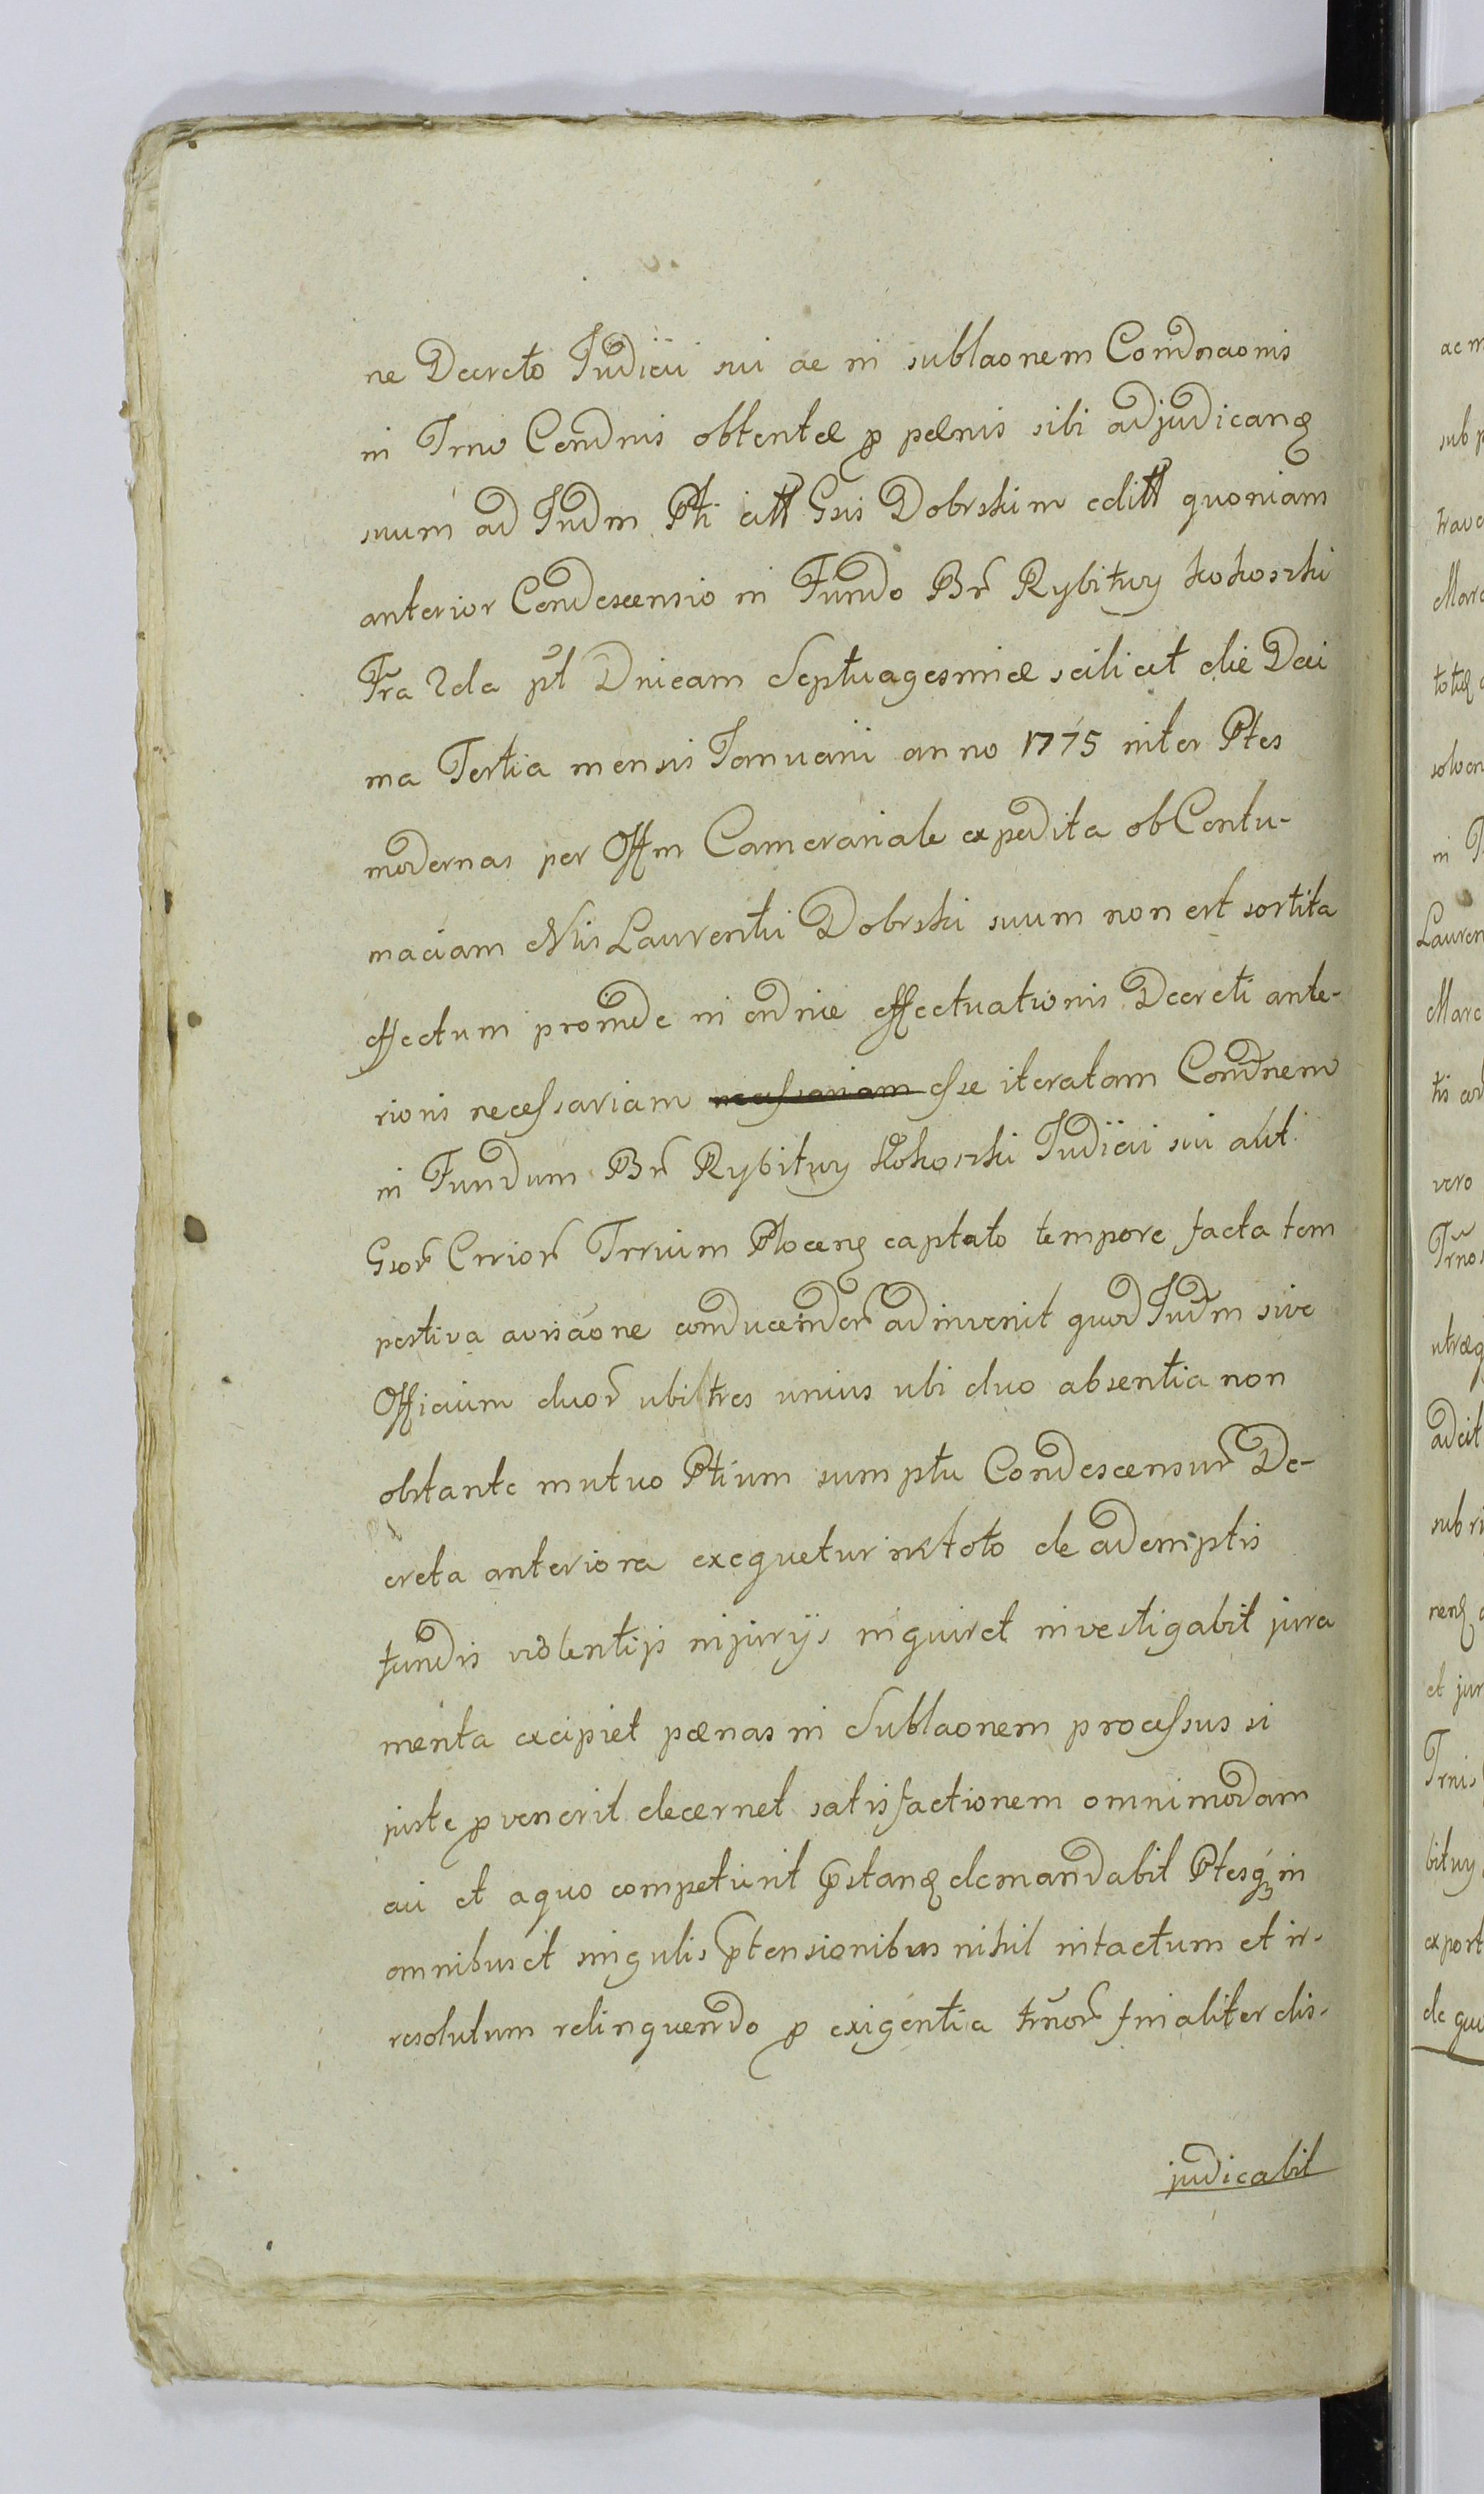 ne Decreto Judicii sui ac in sublaonem Comdnaonis
in Trno Cendnis obtentæ p pœnis sibi adjudicanꝫ
suum ad Judm Pti citt Gsis Dobrskim editt quoniam
anterior Condescensio in Fundo Br̃ Rybitwy Kokoszki
Fr̃a 2da pt̃ Dnicam Septuagesimæ scilicet die Deci
ma Tertia mensis Januarii anno 1775 inter Ptes
modernas per Offm Camerariale expedita ob Contu-
maciam Nlis Laurentii Dobrski suum non est sortita
effectum proinde in ordine effectuationis Decreti ante-
rioris necessariam necessariam esse iteratam Condnem
in Fundum Br̃ Rybitwy Kokoszki Judicii sui aut
Gsor̃ Crrior̃ Trruim Plocenꝫ captato tempore facta tem
pestiva avisãone conducendor̃ adinvenit quod Judm sive
Officium duor̃ ubi tres unius ubi duo absentia non
obstante mutuo Ptium sumptu Condescensur̃ De-
creta anteriora exequetur in toto de ademptis
fundis violentijs injurijs inquiret investigabit jura
menta excipiet pœnas in Sublaonem processus si
juste pvenerit decernet satisfactionem omnimodam
cui et a quo competierit pstanꝫ demandabit Ptesqꝫ in
omnibus et singulis ptensionibus nihil intactum et ir-
resolutum relinquendo p exigentia trñor̃ finaliter dis-
judicabit
ac m
sub p
trave
Marc
totiꝫ
solven
in T
Lauren
Marc
tis ad
vero
Tr̃no
utræq
adcit
sub ri
nenꝫ
et jur
Trnis
bitwy
export
de quo